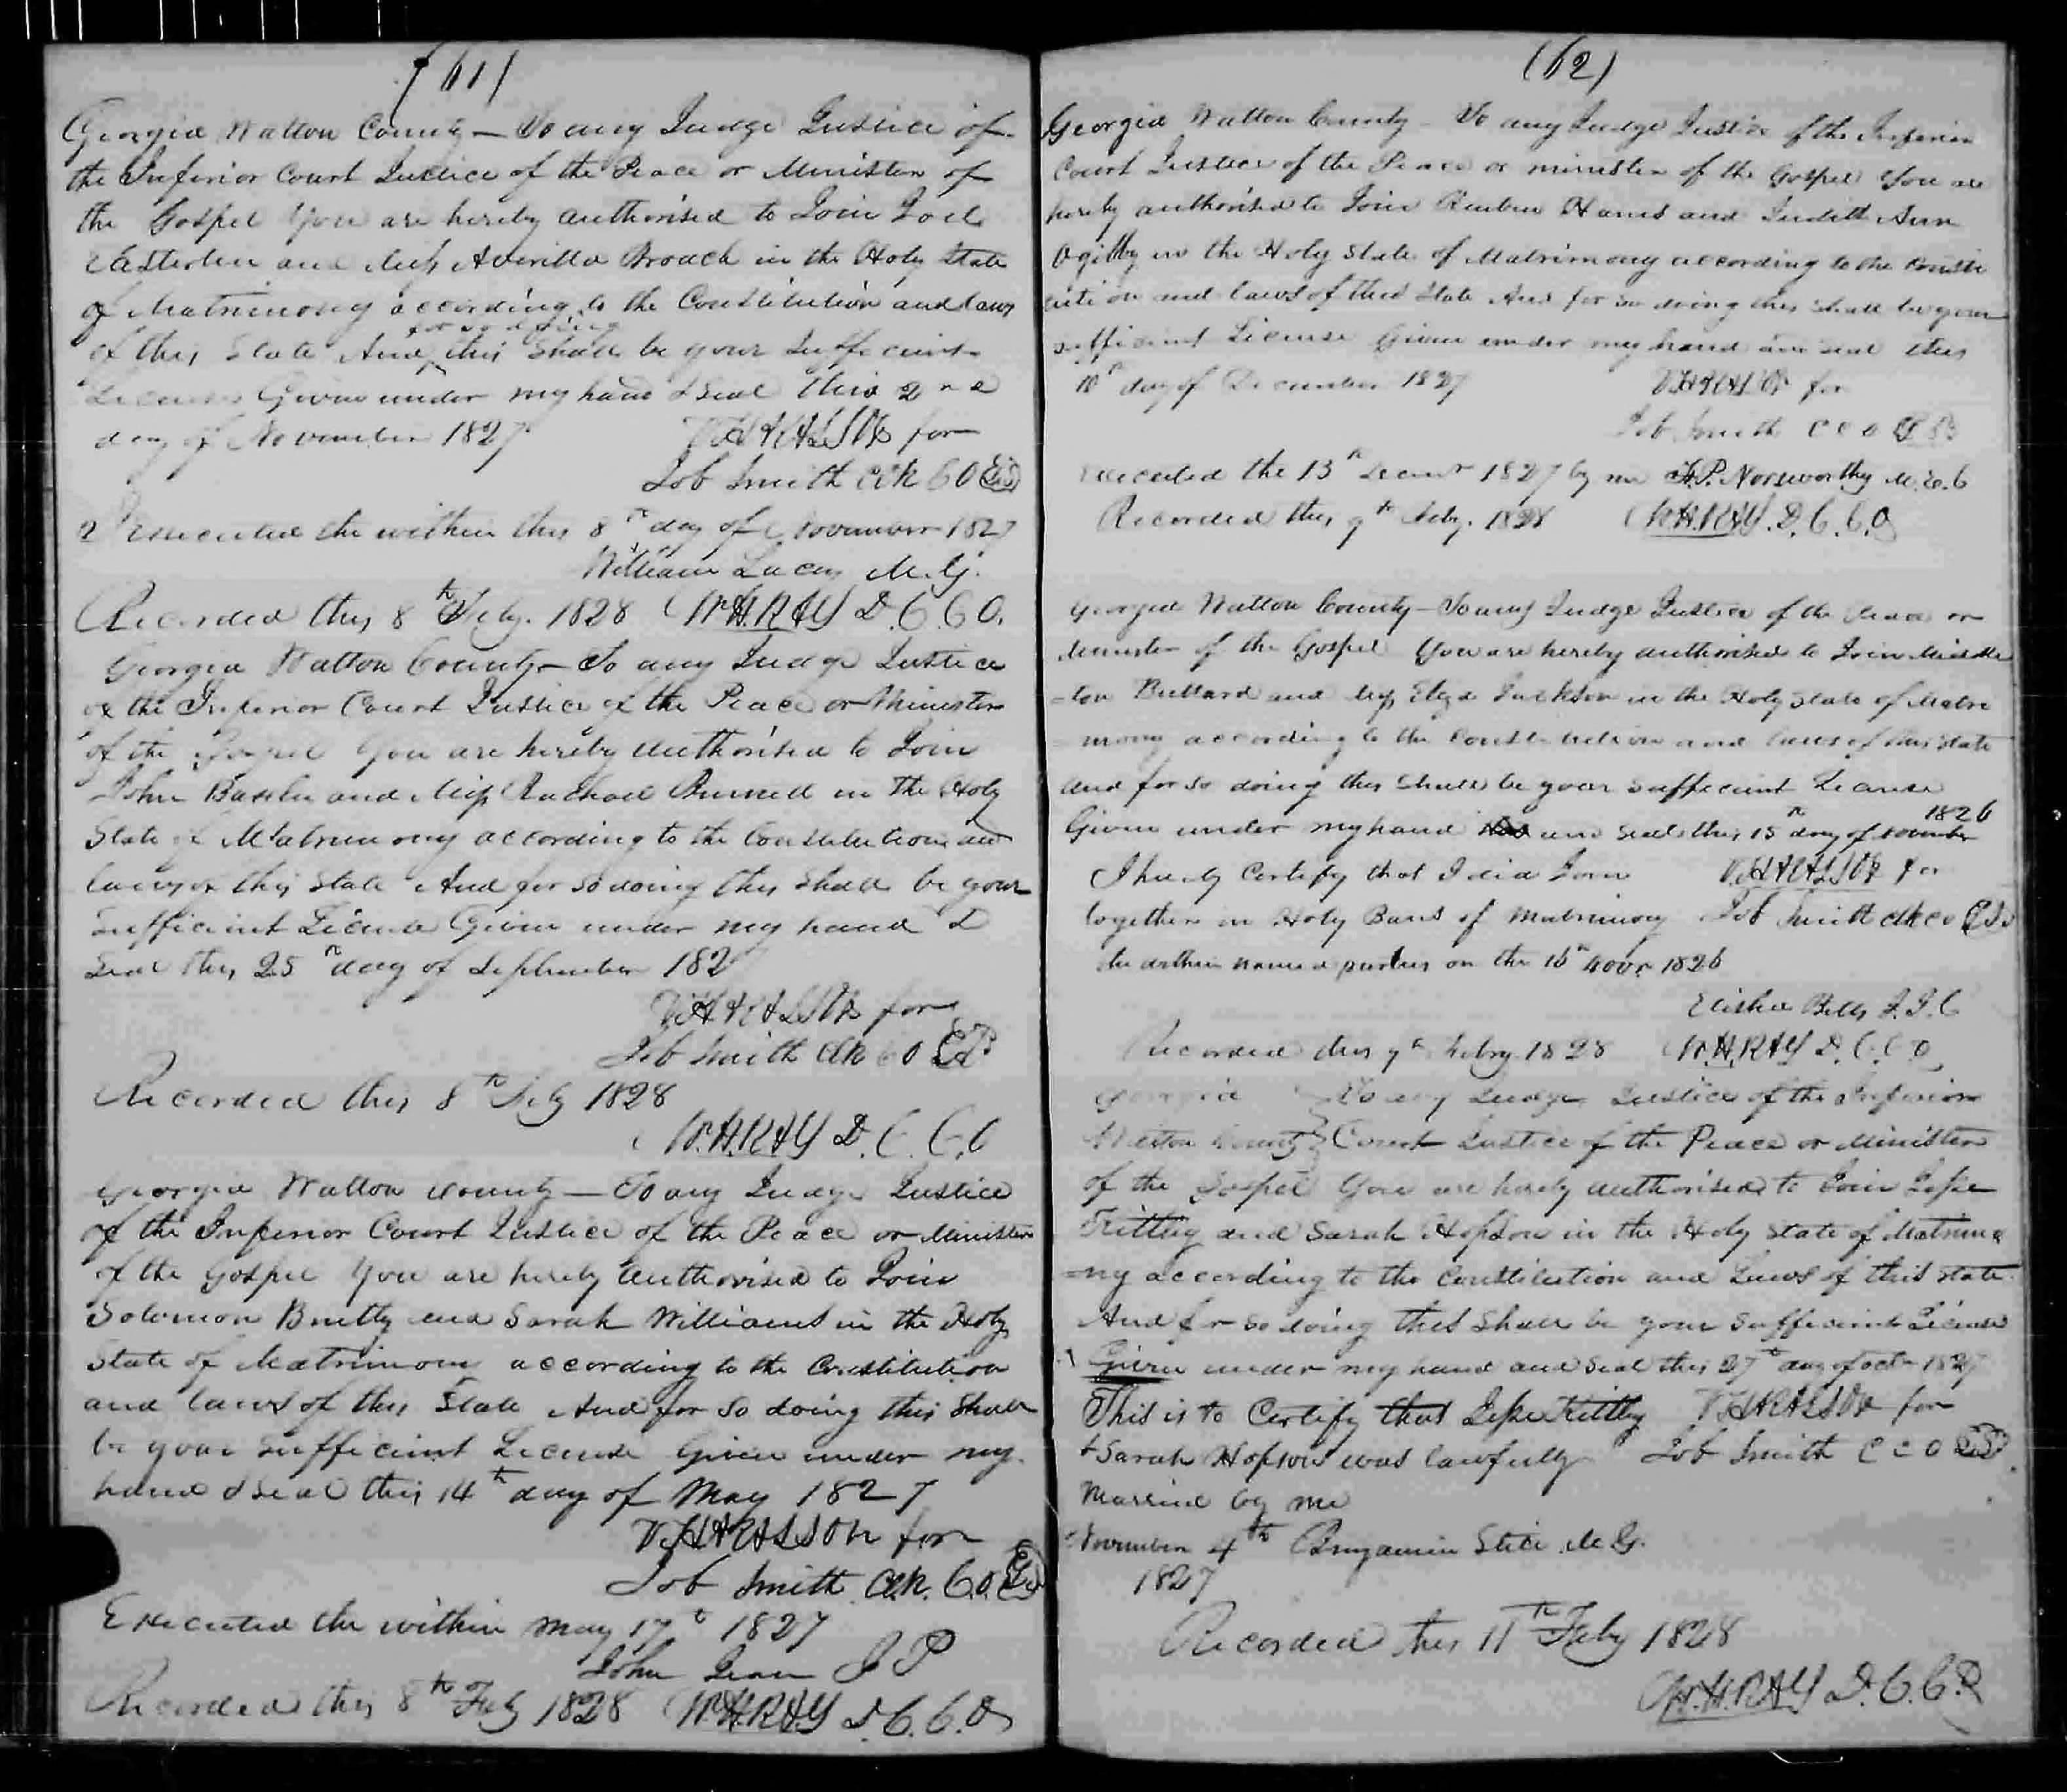 (61)
Georgia Walton County — To any Judge Justice of
the Inferior Court Justice of the Peace or Minister of
the Gospel You are hereby authorised to Join Joel
Easterlin and Miss Averilla Broach in the Holy State
of Matrimony according to the Constitution and laws
for so doing
of this State And this Shall be your Sufficient
License Given under my hand & Seal this 2nd
day of November 1827 V. HARALSON for
Job Smith Clk C O
I Executed the within this 8th day of November 1827
William Lacey M. G.
Recorded this 8th Feby. 1828 W.H. RAY D. C. C. O.
Georgia Walton County — To any Judge Justice
of the Inferior Court Justice of the Peace or Minister
of the Gospel You are hereby authorised to Join
John and Miss Rachael in the Holy
State of Matrimony according to the Constitution and
laws of this State And for so doing this Shall be your
Sufficient License Given under my hand &
Seal this 25th day of September 182
V. HARALSON for
Job Smith Clk C O
Recorded this 8th Feby 1828
W.H. RAY D. C. C. O
Georgia Walton County — To any Judge Justice
of the Inferior Court Justice of the Peace or Minister
of the Gospel You are hereby authorised to Join
Solomon and Sarah Williams in the Holy
State of Matrimony according to the Constitution
and laws of this State And for so doing this Shall
be your Sufficient License Given under my
hand & Seal this 14th day of May 1827
V. HARALSON for
Job Smith Clk. C.O.
Executed the within May 17th 1827
John J P
Recorded this 8th Feby 1828 W.H. RAY D. C. C. O
(62)
Georgia Walton County — To any Judge Justice of the Inferior
Court Justice of the Peace or minister of the Gospel You are
hereby authorised to Join Reuben and Judith Ann
Ogilby in the Holy State of Matrimony according to the Consti
tution and laws of this State And for so doing this Shall be your
sufficient License Given under my hand and seal this
10th day of December 1827 V. HARALSON for
Job Smith C C O
Executed the 13th 1827 by me Norsworthy M. E. C
Recorded this 9th Feby. 1828 W.H. RAY. D. C. C. O
Georgia Walton County — To any Judge Justice of the Peace or
Minister of the Gospel You are hereby authorised to Join Middle
-ton Bullard and Miss Eliza Jackson in the Holy State of Matri
-mony according to the Constitution and laws of this State
And for so doing this Shall be your sufficient License
1826
Given under my hand and seal this 15th day of November
I hereby Certify that I did Join V. HARALSON for
together in Holy Bans of Matrimony Job Smith Clk C O
the within named parties on the 16th Novr 1826
Elisha Betts J. I. C
Recorded this 9th Feby. 1828 W.H. RAY D. C. C. O
Georgia } To any Judge Justice of the Inferior
Walton County } Court Justice of the Peace or Minister
of the Gospel You are hereby authorised to Join Jesse
Kittley and Sarah Hopson in the Holy State of Matrimo
-ny according to the Constitution and Laws of this State.
And for so doing this Shall be your Sufficient License
Given under my hand and Seal this 27th day of Octr 1827
This is to Certify that Jesse Kittley V. HARALSON for
& Sarah Hopson was lawfully Job Smith C C O
Married by me
November 4th Benjamin Stice M G.
1827
Recorded this 11th Feby 1828
W.H. RAY D. C. C. O